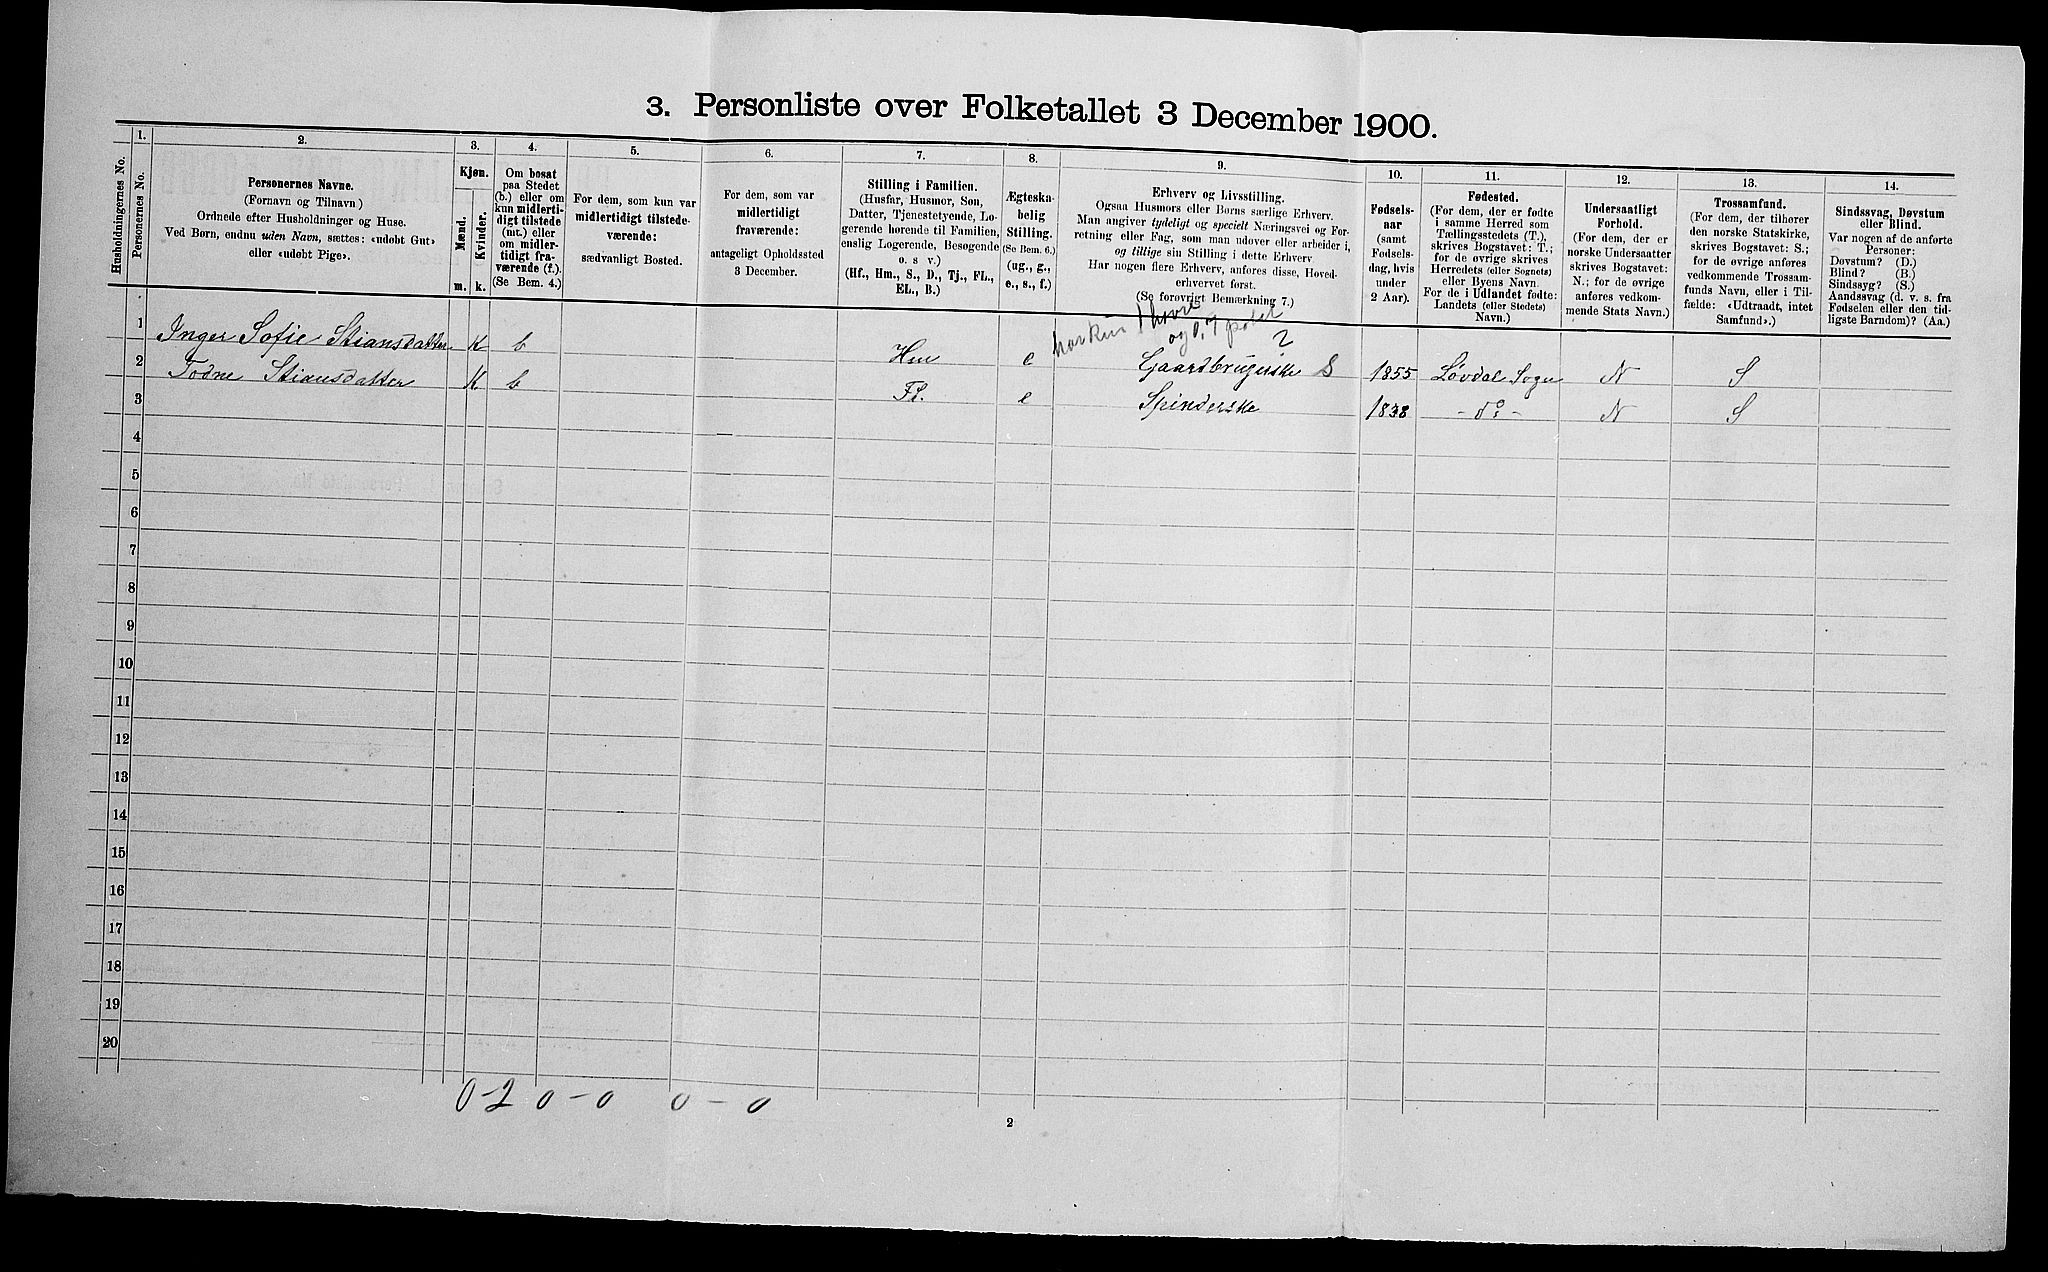 3. Personliste over Folketallet 3 December 1900.
1. 2. 3. 4. 5. 6. 7. 8. 9. 10. 11. 12. 13. 14.
Husholdningernes No.
Personernes No.
Personernes Navne.
(Fornavn og Tilnavn)
Ordnede efter Husholdninger og Huse.
Ved Børn, endnu uden Navn, sættes: «udøbt Gut»
eller «udøbt Pige».
Kjøn.
Mænd.
Kvinder.
m. k.
Om bosat
paa Stedet
(b.) eller om
kun midlerti-
digt tilstede
(mt.) eller
om midler-
tidigt fra-
værende (f.).
(Se Bem. 4.)
For dem, som kun var
midlertidigt tilstede-
værende:
sædvanligt Bosted.
For dem, som var
midlertidigt
fraværende:
antageligt Opholdssted
3 December.
Stilling i Familien.
(Husfar, Husmor, Søn,
Datter, Tjenestetyende, Lo-
gerende hørende til Familien,
enslig Logerende, Besøgende
o. s v.)
(Hf., Hm., S., D., Tj., FL.,
EL., B.)
Ægteska-
belig
Stilling.
(Se Bem. 6.)
(ug., g.,
e., s., f.)
Erhverv og Livsstilling.
Ogsaa Husmors eller Børns særlige Erhverv.
Man angiver tydeligt og specielt Næringsvei og For-
retning eller Fag, som man udøver eller arbeider i,
og tillige sin Stilling i dette Erhverv.
Har nogen flere Erhverv, anføres disse, Hoved-
erhvervet først.
(Se forøvrigt Bemærkning 7.)
Fødsels-
aar
(samt
Fødsels-
dag, hvis
under
2 Aar).
Fødested.
(For dem, der er fødte
i samme Herred som
Tællingsstedets (T.),
skrives Bogstavet: T.;
for de øvrige skrives
Herredets (eller Sognets)
eller Byens Navn.
For de i Udlandet fødte:
Landets (eller Stedets)
Navn.)
Undersaatligt
Forhold.
(For dem, der er
norske Undersaatter
skrives Bogstavet:
N.; for de øvrige
anføres vedkom-
mende Stats Navn.)
Trossamfund.
(For dem, der tilhører
den norske Statskirke,
skrives Bogstavet: S.;
for de øvrige anføres
vedkommende Trossam-
funds Navn, eller i Til-
fælde: «Udtraadt, intet
Samfund».)
Sindssvag, Døvstum
eller Blind.
Var nogen af de anførte
Personer:
Døvstum? (D.)
Blind? (B.)
Sindssyg? (S.)
Aandssvag (d. v. s. fra
Fødselen eller den tid-
ligste Barndom)? (Aa.)
1 Inger Sofie Stiansdatter K b Hm e Gaardbrugerske S 1855 Løvdal Sogn N S
2 Todne Stiansdatter K b Fl. e Spinderske 1838 - do - N S
3
4
5
6
7
8
9
10
11
12
13
14
15
16
17
18
19
20
0-2 0-0 0-0
2